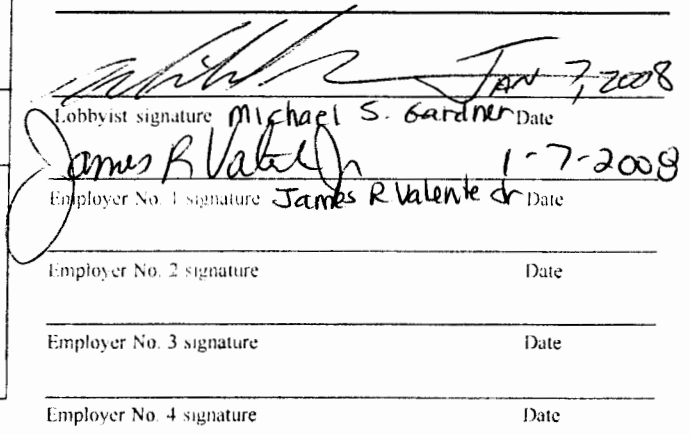 Jan 7, 2008
Lobbyist signature Michael S. Gardner Date
James R Valente Jr 1-7-2008
Employer No. 1 signature James R Valente Jr Date
Employer No. 2 signature Date
Employer No. 3 signature Date
Employer No. 4 signature Date